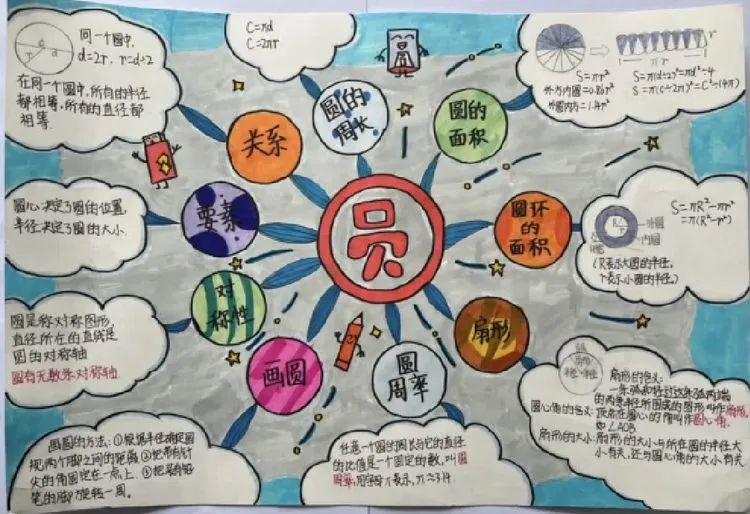 圆
关系
圆的
周长
圆的
面积
要素
圆环
的
面积
对
称性
扇形
画圆
圆
周率
圆
r
d
同一个圆中,
d=2r, r=d÷2
在同一个圆中,所有的半径
都相等,所有的直径都
相等.
C=πd
C=2πr
πr
r
S=πr²
S=π(d÷2)²=πd²÷4
S=π(C÷2π)²=C²÷(4π)
外方内圆=0.86r²
外圆内方=1.14r²
圆心决定了圆的位置,
半径决定了圆的大小.
S=πR²-πr²
=π(R²-r²)
外圆
内圆
(R表示大圆的半径,
r表示小圆的半径.)
圆是轴对称图形,
直径所在的直线是
圆的对称轴
圆有无数条对称轴.
弧
扇形
半径
半径
扇形的含义:
一条弧和经过这条弧两端
的两条半径所围成的图形叫作扇形.
圆心角的含义:顶点在圆心的角叫作圆心角.
如∠AOB
扇形的大小:扇形的大小与所在圆的半径大
小有关,还与圆心角的大小有关
画圆的方法:①根据半径确定圆
规两个脚之间的距离 ②把带有针
尖的角固定在一点上. ③把带有铅
笔的脚旋转一周.
任意一个圆的周长与它的直径
的比值是一个固定的数,叫圆
周率,用字母π表示,π≈3.14